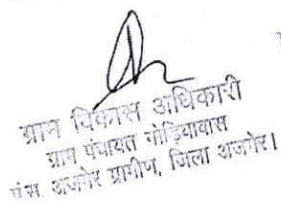 ग्राम विकास अधिकारी
ग्राम पंचायत गोड़ियावास
पं.स. अजमेर ग्रामीण, जिला अजमेर।